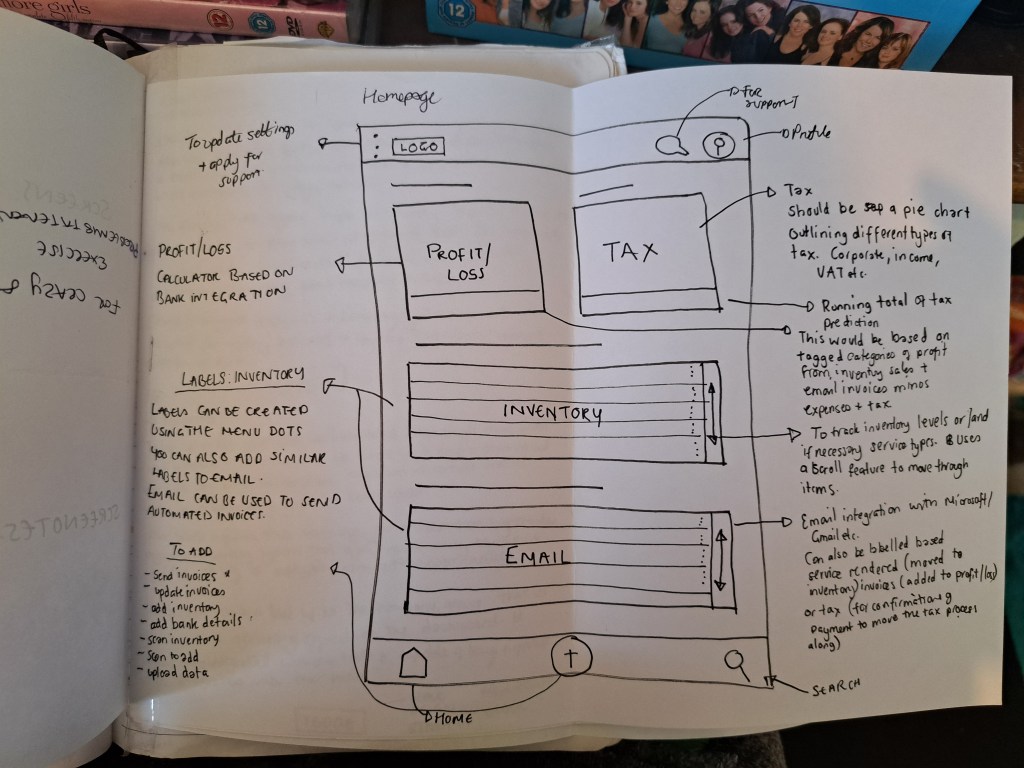 more girls
12
12
12
SCREENS
EXERCISE
FOR CRAZY 8
SCREENOTES
Homepage
To update settings
+ apply for
support.
LOGO
For
support
Profile
PROFIT/LOSS
CALCULATOR BASED ON
BANK INTEGRATION
PROFIT/
LOSS
TAX
Tax
Should be a pie chart
outlining different types of
tax. Corporate, income,
VAT etc.
Running total of tax
prediction
This would be based on
tagged categories of profit
from inventory sales +
email invoices minos
expenses + tax
LABELS: INVENTORY
LABELS CAN BE CREATED
USING THE MENU DOTS
YOU CAN ALSO ADD SIMILAR
LABELS TO EMAIL.
EMAIL CAN BE USED TO SEND
AUTOMATED INVOICES.
INVENTORY
To track inventory levels or/and
if necessary service types. Uses
a scroll feature to move through
items.
EMAIL
Email integration with Microsoft/
Gmail etc.
Can also be labelled based
service rendered (moved to
inventory) invoices (added to profit/loss)
or tax (for confirmation of
payment to move the tax process
along)
TO ADD
- Send invoices *
- update invoices
- add inventory
- add bank details
- scan inventory
- scan to add
- upload data
HOME
SEARCH